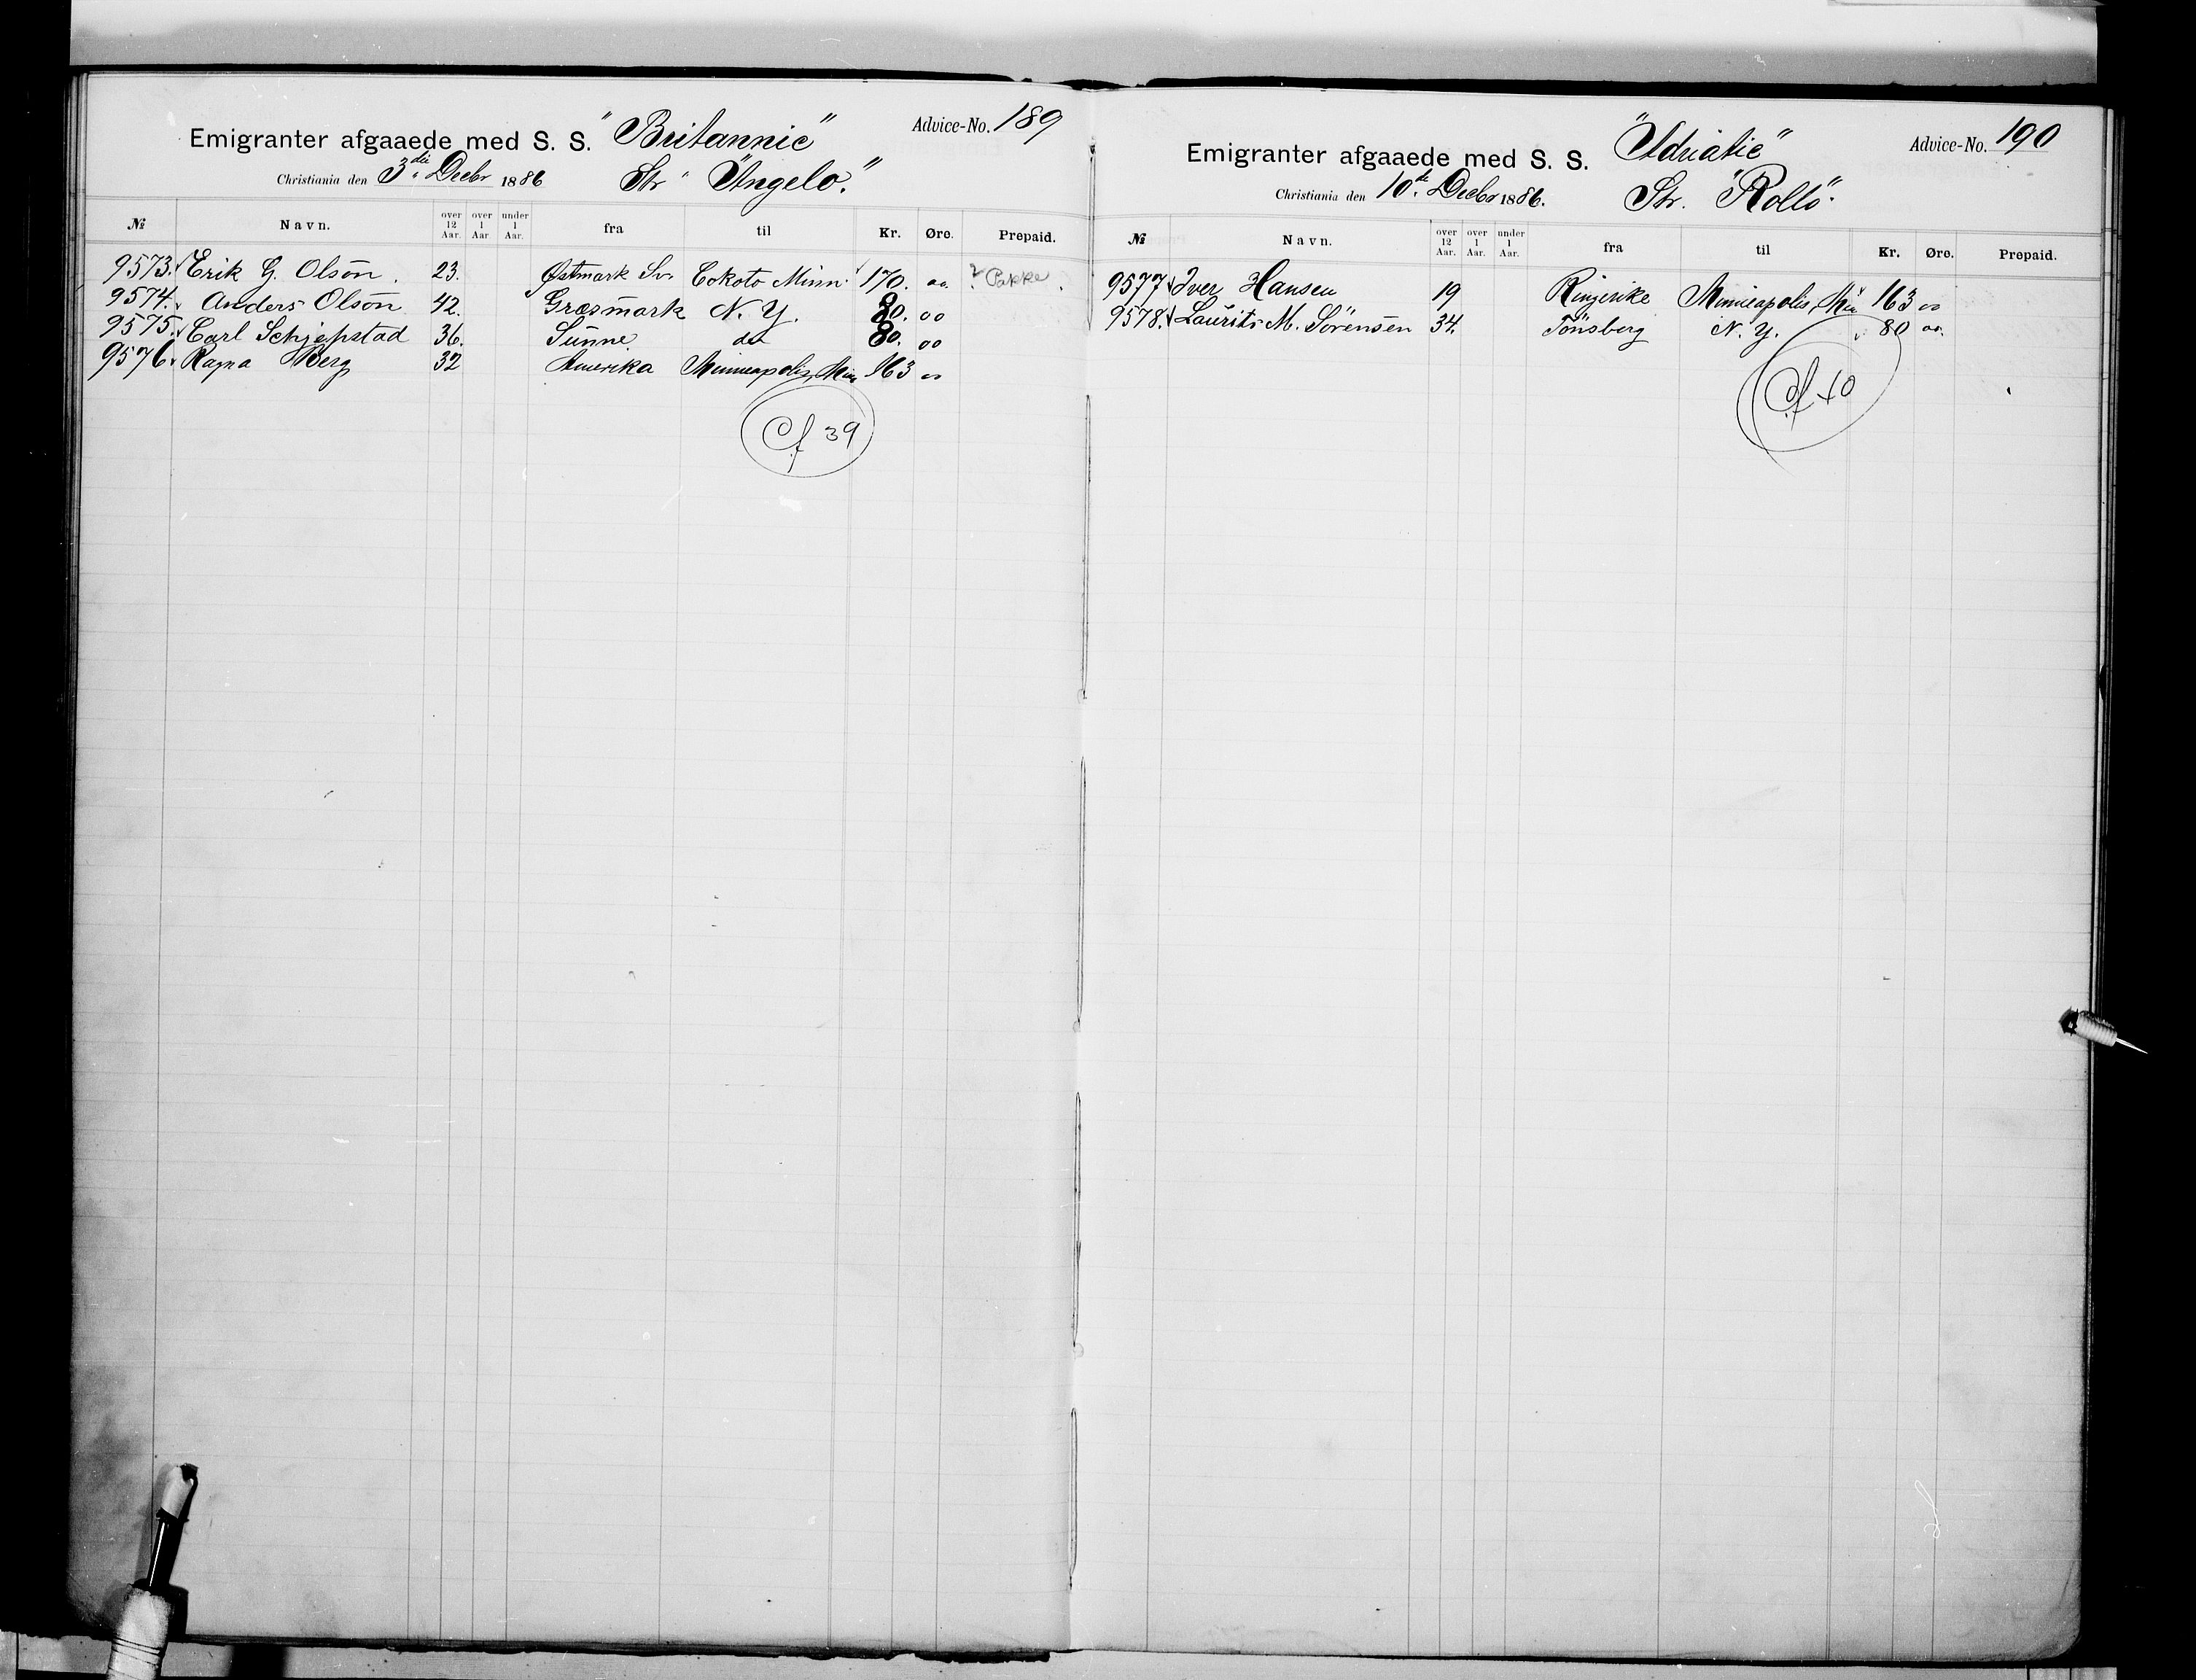 Emigranter afgaaede med S. S. "Britannic" Advice-No. 189
Christiania den 3die Decbr 1886 Str "Angelo."
№ Navn. over 12 Aar. over 1 Aar. under 1 Aar. fra til Kr. Øre. Prepaid.
9573. Erik G. Olson. 23. Østmark Sv. Cokoto Minn. 170. oo. ? Pakke
9574. Anders Olson 42. Græsmark N. Y. 80. oo
9575. Carl Schjepstad 36. Sunne do 80. oo
9576. Ragna Berg 32 Amerika Minneapolis, Min 163 oo
Cf 39
Emigranter afgaaede med S. S. "Adriatic" Advice-No. 190
Christiania den 10de Decbr 1886. Str. "Rollo".
№ Navn. over 12 Aar. over 1 Aar. under 1 Aar. fra til Kr. Øre. Prepaid.
9577 Iver Hansen 19 Ringerike Minneapolis, Min 163 oo
9578. Laurits M. Sörensen 34. Tönsberg N. Y. 80 oo.
Cf 40